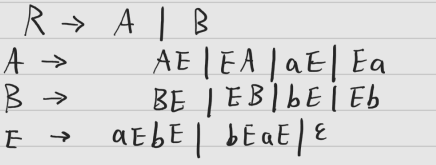 R → A | B
A → AE | EA | aE | Ea
B → BE | EB | bE | Eb
E → aEbE | bEaE | ε